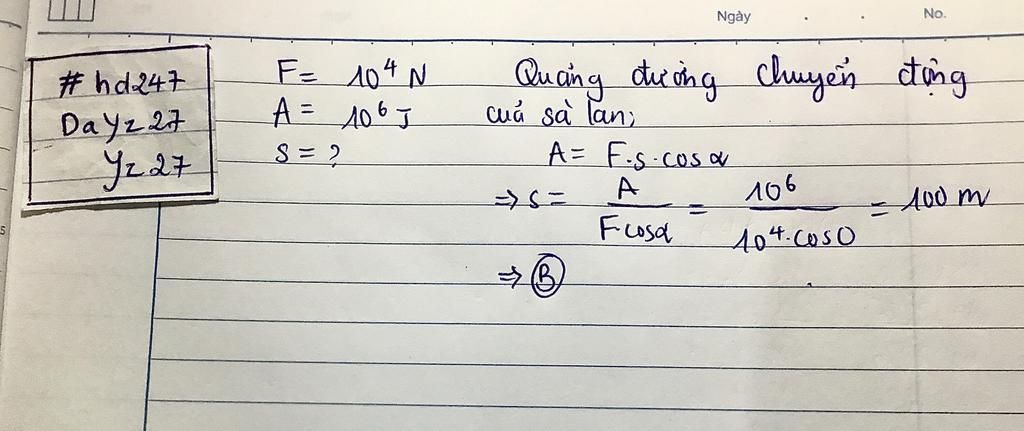 Ngày . . No.
#hd247
DaYz27
Yz27
F = 10⁴ N
A = 10⁶ J
S = ?
Quãng đường chuyển động
của sà lan;
A = F.s.cosα
=> s = A / Fcosα = 10⁶ / 10⁴.cos0 = 100 m
=> B